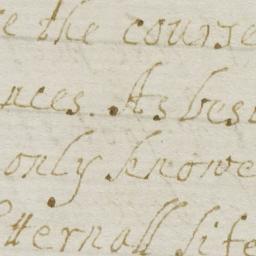 the course
nces. As bes
only knowe
Etternall life